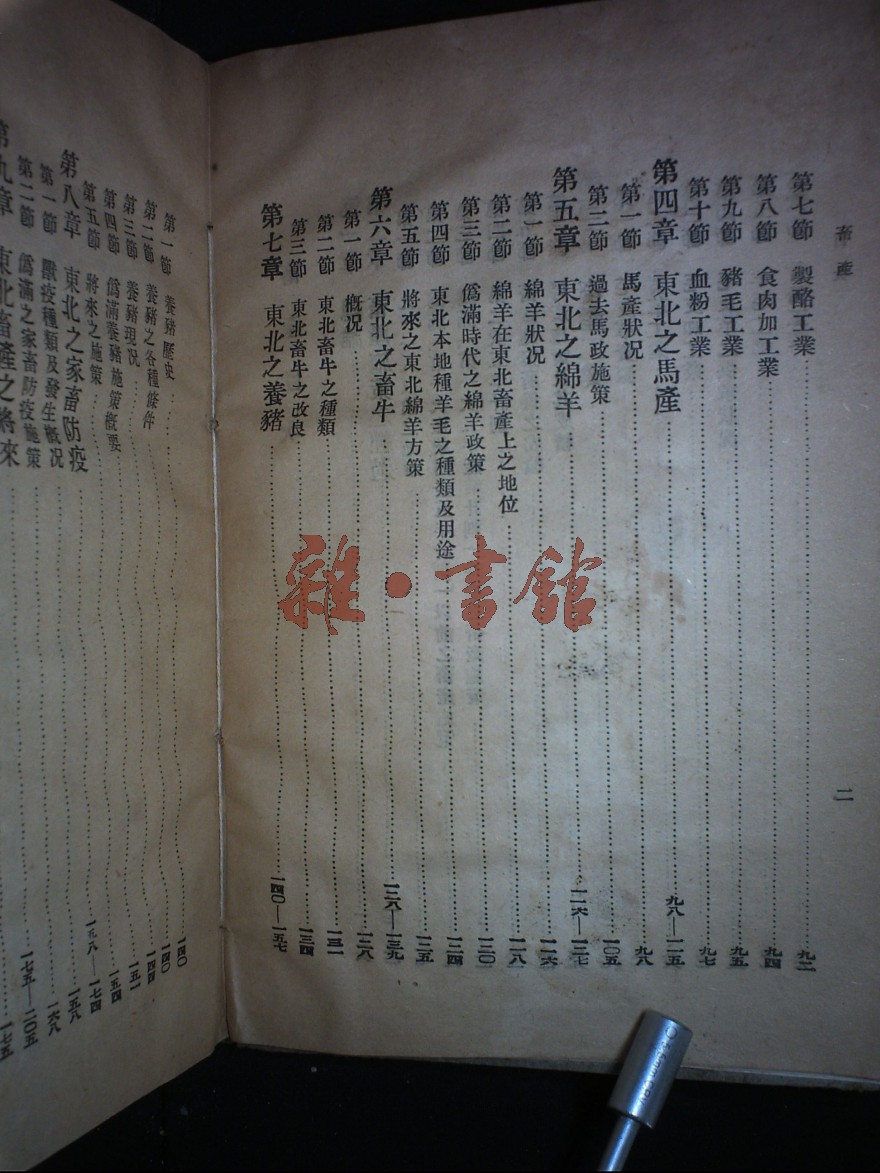 畜產
二
第七節 製酪工業 九二
第八節 食肉加工業 九四
第九節 豬毛工業 九五
第十節 血粉工業 九七
第四章 東北之馬產 九八—一一五
第一節 馬產狀況 九八
第二節 過去馬政施策 一〇五
第五章 東北之綿羊 一一六—一二七
第一節 綿羊狀況 一一六
第二節 綿羊在東北畜產上之地位 一一八
第三節 僞滿時代之綿羊政策 一二〇
第四節 東北本地種羊毛之種類及用途 一二四
第五節 將來之東北綿羊方策 一二五
第六章 東北之畜牛 一二八—一三九
第一節 概況 一二八
第二節 東北畜牛之種類 一三一
第三節 東北畜牛之改良 一三四
第七章 東北之養豬 一四〇—一五七
第一節 養豬歷史 一四〇
第二節 養豬之各種條件 一四〇
第三節 養豬現況 一四四
第四節 僞滿養豬施策概要 一五一
第五節 將來之施策 一五四
第八章 東北之家畜防疫 一五八—一七四
第一節 獸疫種類及發生概況 一五八
第二節 僞滿之家畜防疫施策 一六八
第九章 東北畜產之將來 一七五—二〇五
一七五
雜·書館